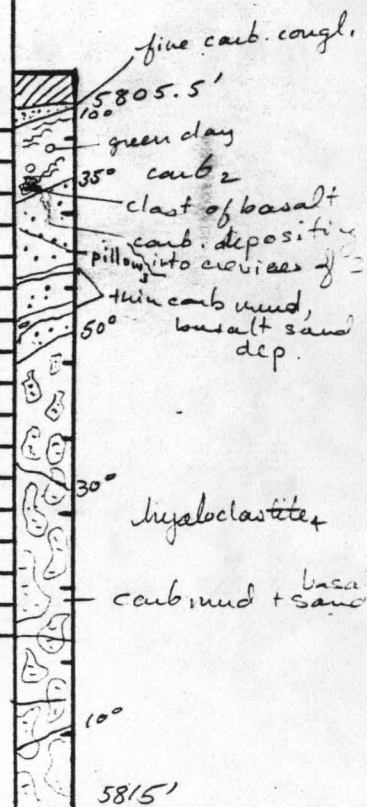 fine carb. congl.
5805.5'
10°
green clay
35° carb 2
clast of basalt
carb. depositing
pillow 3 into crevices of
thin carb mud,
50° basalt sand
dep.
30°
hyaloclastite 4
carb mud + basa
sand
10°
5815'